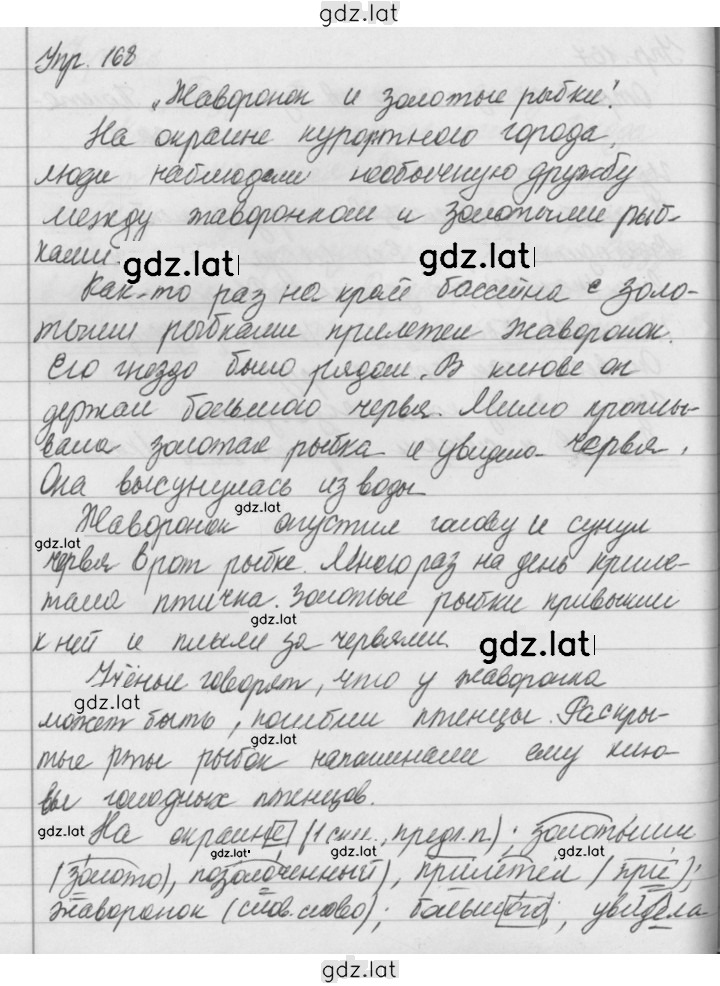 gdz.lat
Упр. 168
„Жаворонок и золотые рыбки".
На окраине курортного города
люди наблюдали необычную дружбу
между жаворонком и золотыми рыб-
ками.
gdz.lat gdz.lat
Как-то раз на край бассейна с золо-
тыми рыбками прилетел жаворонок.
Его гнездо было рядом. В клюве он
держал большого червя. Мимо проплы-
вала золотая рыбка и увидела червя.
Она высунулась из воды
gdz.lat
Жаворонок опустил голову и сунул
gdz.lat
червя в рот рыбке. Много раз на день приле-
gdz.lat
тала птичка. Золотые рыбки привыкли
gdz.lat
к ней и плыли за червями.
gdz.lat
Учёные говорят, что у жаворонка
gdz.lat
может быть, погибли птенцы. Раскры-
gdz.lat
тые рты рыбок напоминали ему клю-
вы голодных птенцов.
gdz.lat
На окраине (1 скл., предл.п.); золотыми
gdz.lat gdz.lat
(золото), позолоченный), прилетел (при);
gdz.lat
жаворонок (слов.слово); большого, увидела
gdz.lat